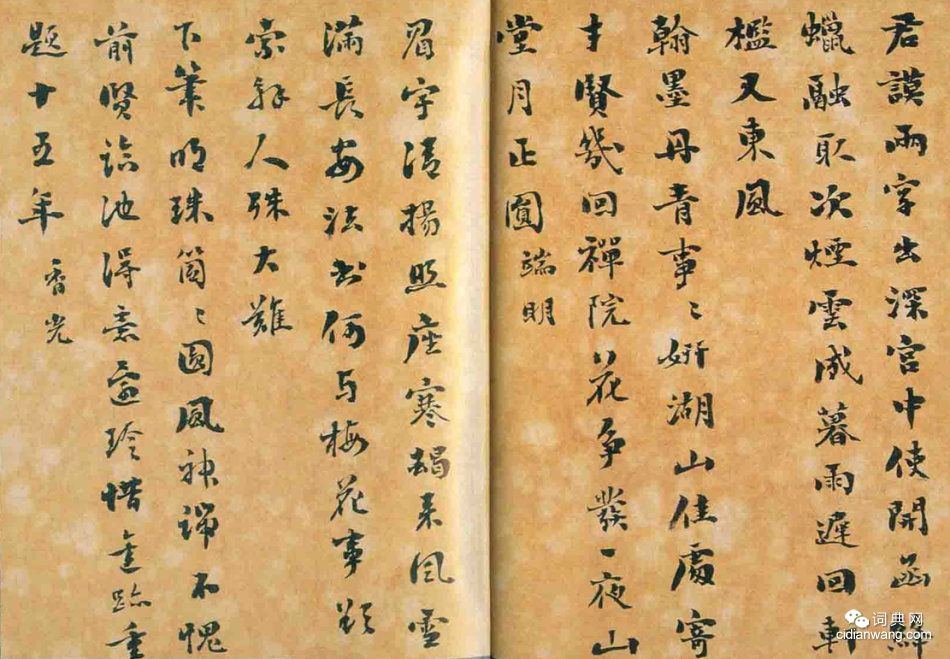 君謨兩字出深宮中使開函絳
蠟融取次煙雲成暮雨遲回軒
檻又東風
翰墨丹青事〻妍湖山佳處寄
才賢幾回禪院花爭發一夜山
堂月正圓 端明
眉宇清揚照座寒朅来風雪
滿長安法書何与梅花事欵
索解人殊大難
下筆明珠箇〻圓風神端不愧
前賢臨池得意還珍惜重
題十五年 香光
词典网
cidianwang.com